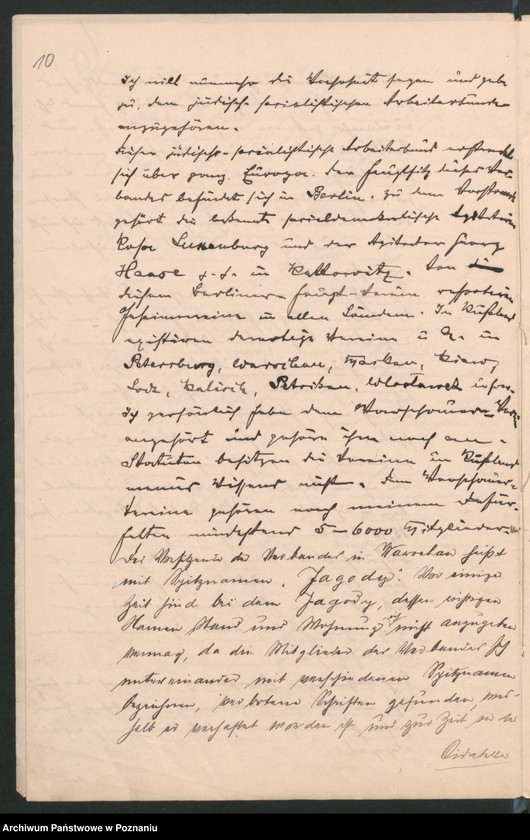 10
Ich will nunmehr die Wahrheit sagen und gebe
zu, dem jüdisch-socialistischen Arbeiterbunde
anzugehören.
Dieser jüdisch-socialistische Arbeiterbund erstreckt
sich über ganz Europa. Der Hauptsitz dieses Ver
bandes befindet sich in Berlin. Zu dem Vorstande
gehört die bekannte socialdemokratische Agitatorin
Rosa Luxenburg und der Agitator Georg
Haase z. Z. in Kattowitz. Von
diesem Berliner Haupt-Verein ressortiren
Geheimvereine in allen Ländern. In Rußland
existiren derartige Vereine u. A. in
Petersburg, Warschau, Moskau, Kiew,
Lodz, Kalisch, Petrikau, Wloclawek
Ich persönlich habe dem Warschauer Verein
angehört und gehöre ihm noch an.
Statuten besitzen die Vereine in Rußland
meines Wissens nicht. Dem Warschauer
Vereine gehören nach meinem Dafür-
halten mindestens 5-6000 Mitglieder
Der Vorsitzende des Verbandes in Warschau heißt
mit Spitznamen "Jagody". Vor einiger
Zeit sind bei dem Jagody, dessen richtigen
Namen Stand und Wohnung ich nicht anzugeben
vermag, da die Mitglieder des Verbandes sich
untereinander mit verschiedenen Spitznamen
bezeichnen, verbotene Schriften gefunden, wes-
halb er verhaftet worden ist und zur Zeit in der
Citadelle
Archiwum Państwowe w Poznaniu